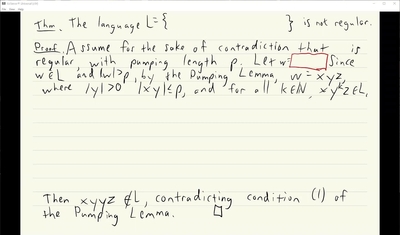 Thm. The language L={ } is not regular.
Proof. Assume for the sake of contradiction that is
regular, with pumping length p. Let w= Since
w∈L and |w|>p, by the Pumping Lemma, w=xyz,
where |y|>0 |xy|≤p, and for all k∈N, xy^kz∈L.
Then xyyz ∉L, contradicting condition (1) of
the Pumping Lemma. □